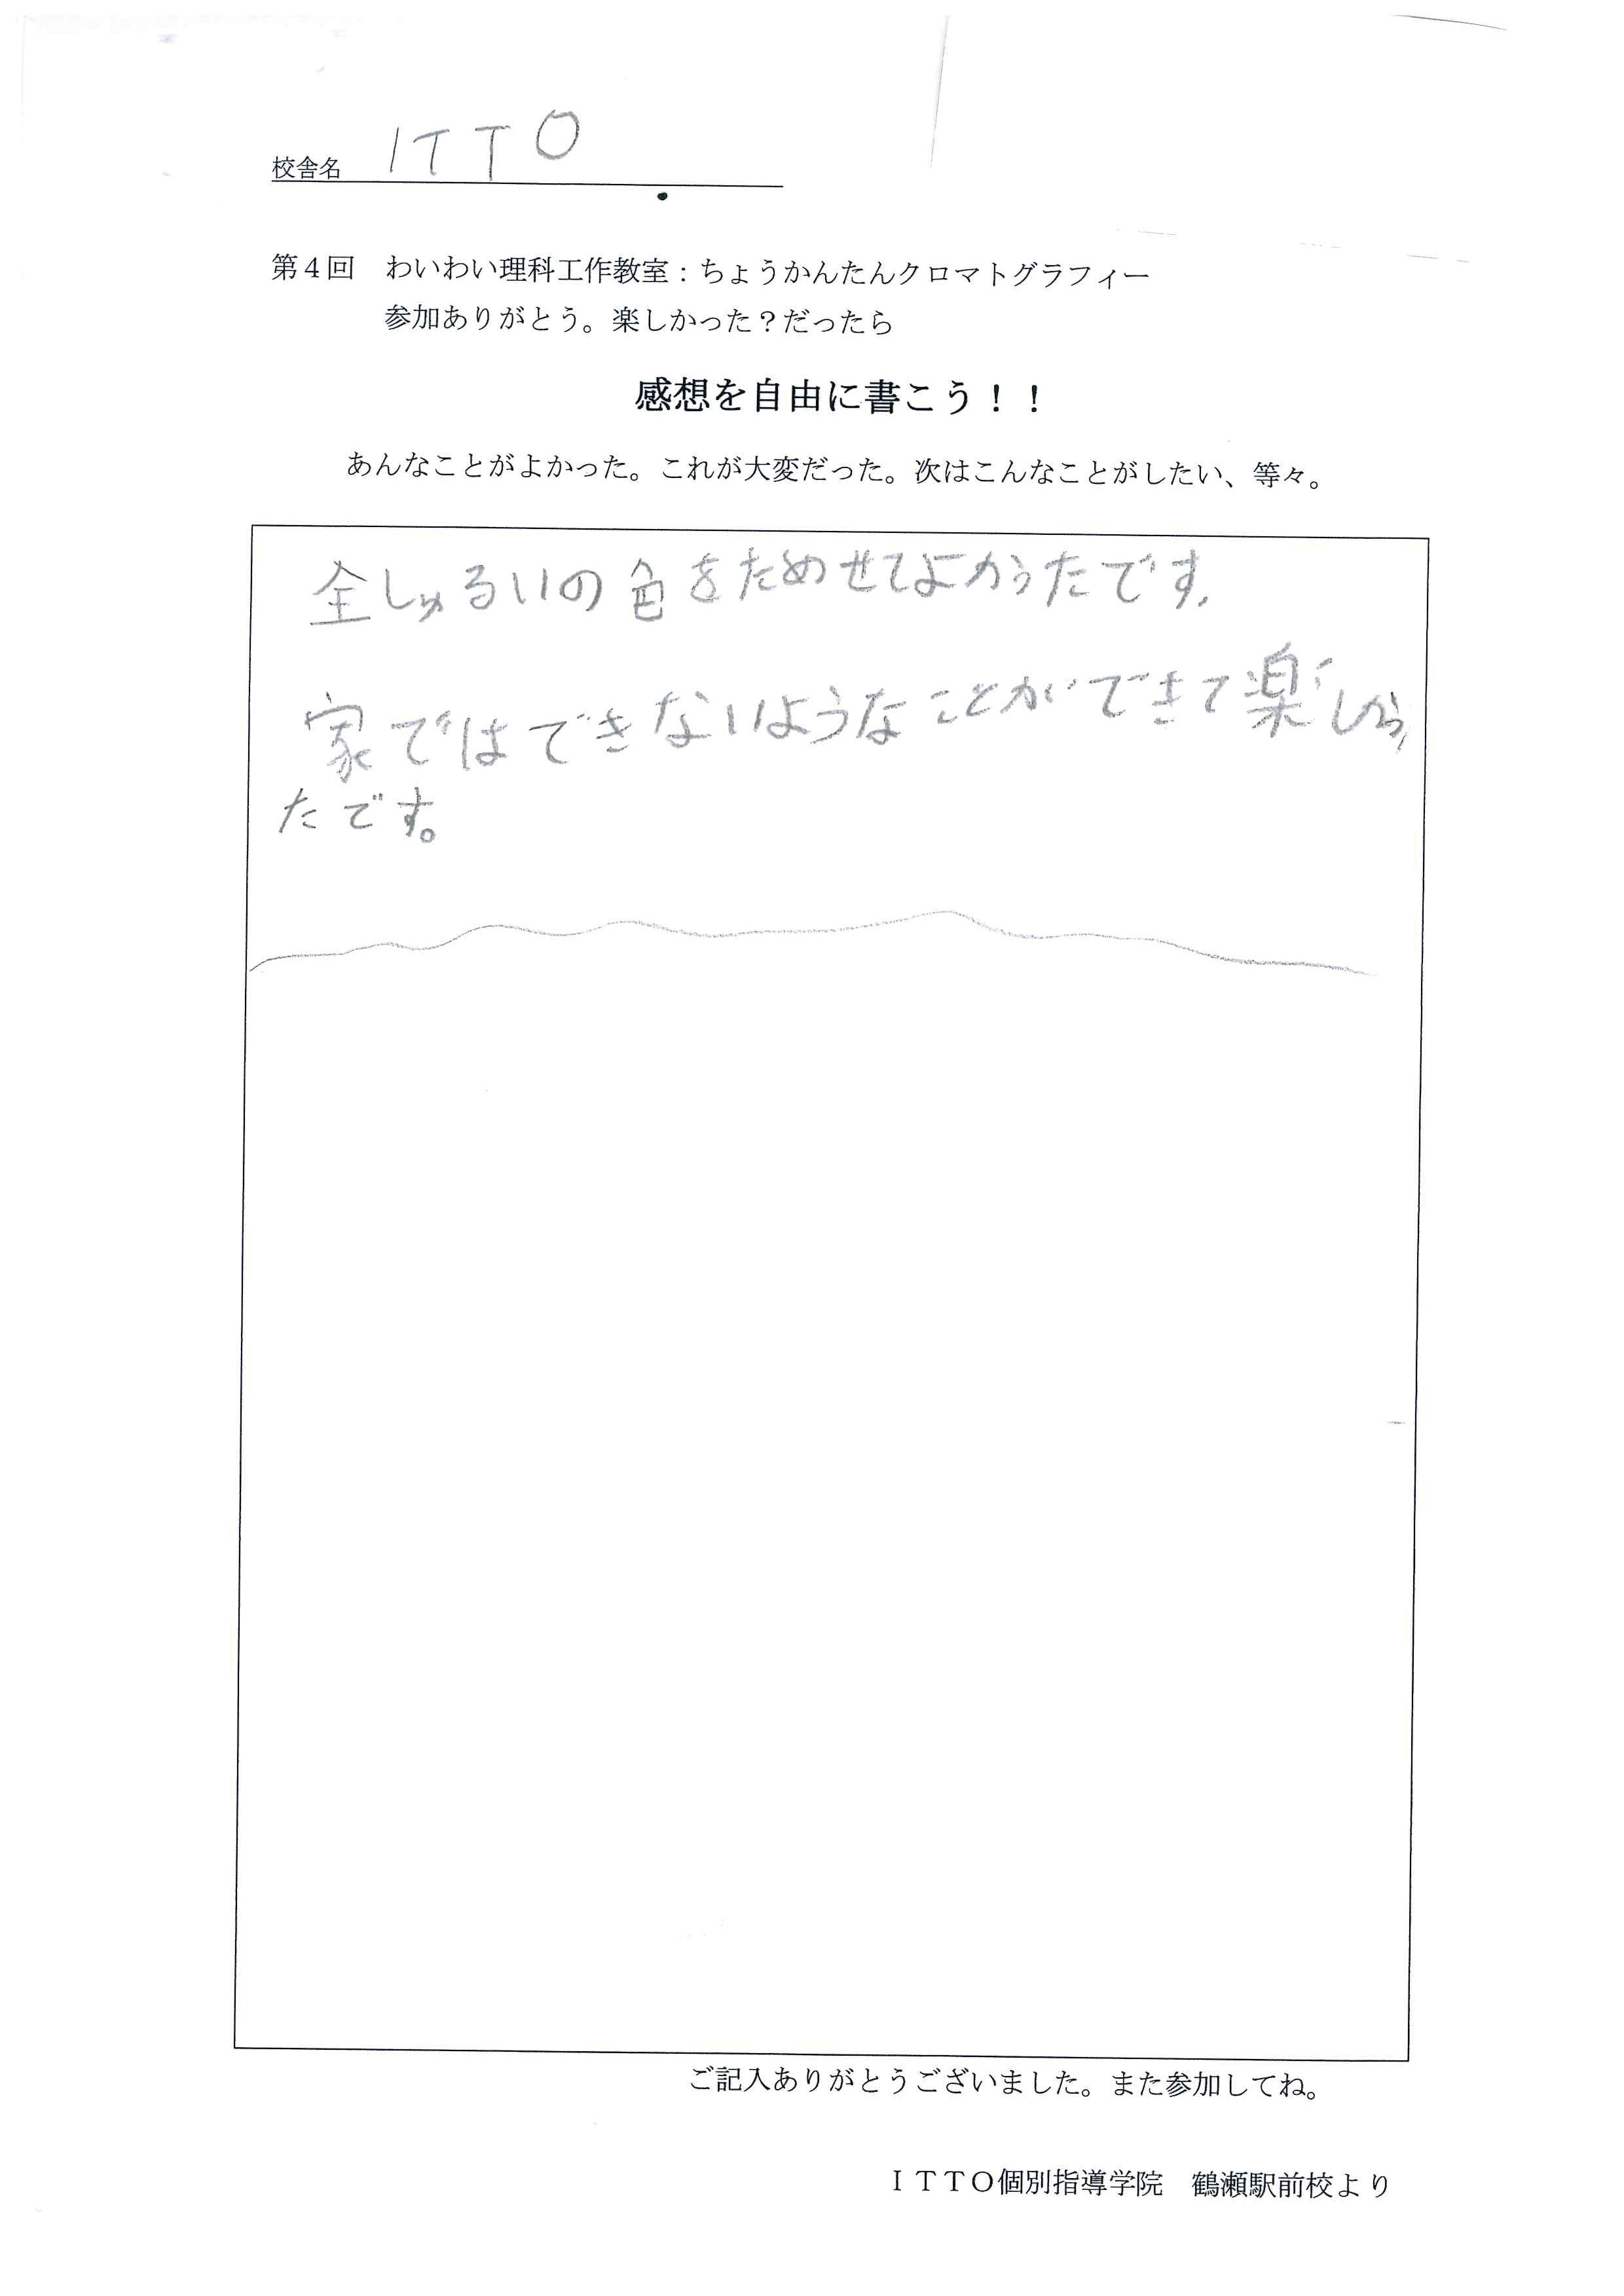 校舎名 ITTO
第４回　わいわい理科工作教室：ちょうかんたんクロマトグラフィー
参加ありがとう。楽しかった？だったら
感想を自由に書こう！！
あんなことがよかった。これが大変だった。次はこんなことがしたい、等々。
全しゅるいの色をためせてよかったです。
家ではできないようなことができて楽しかっ
たです。
ご記入ありがとうございました。また参加してね。
ＩＴＴＯ個別指導学院　鶴瀬駅前校より